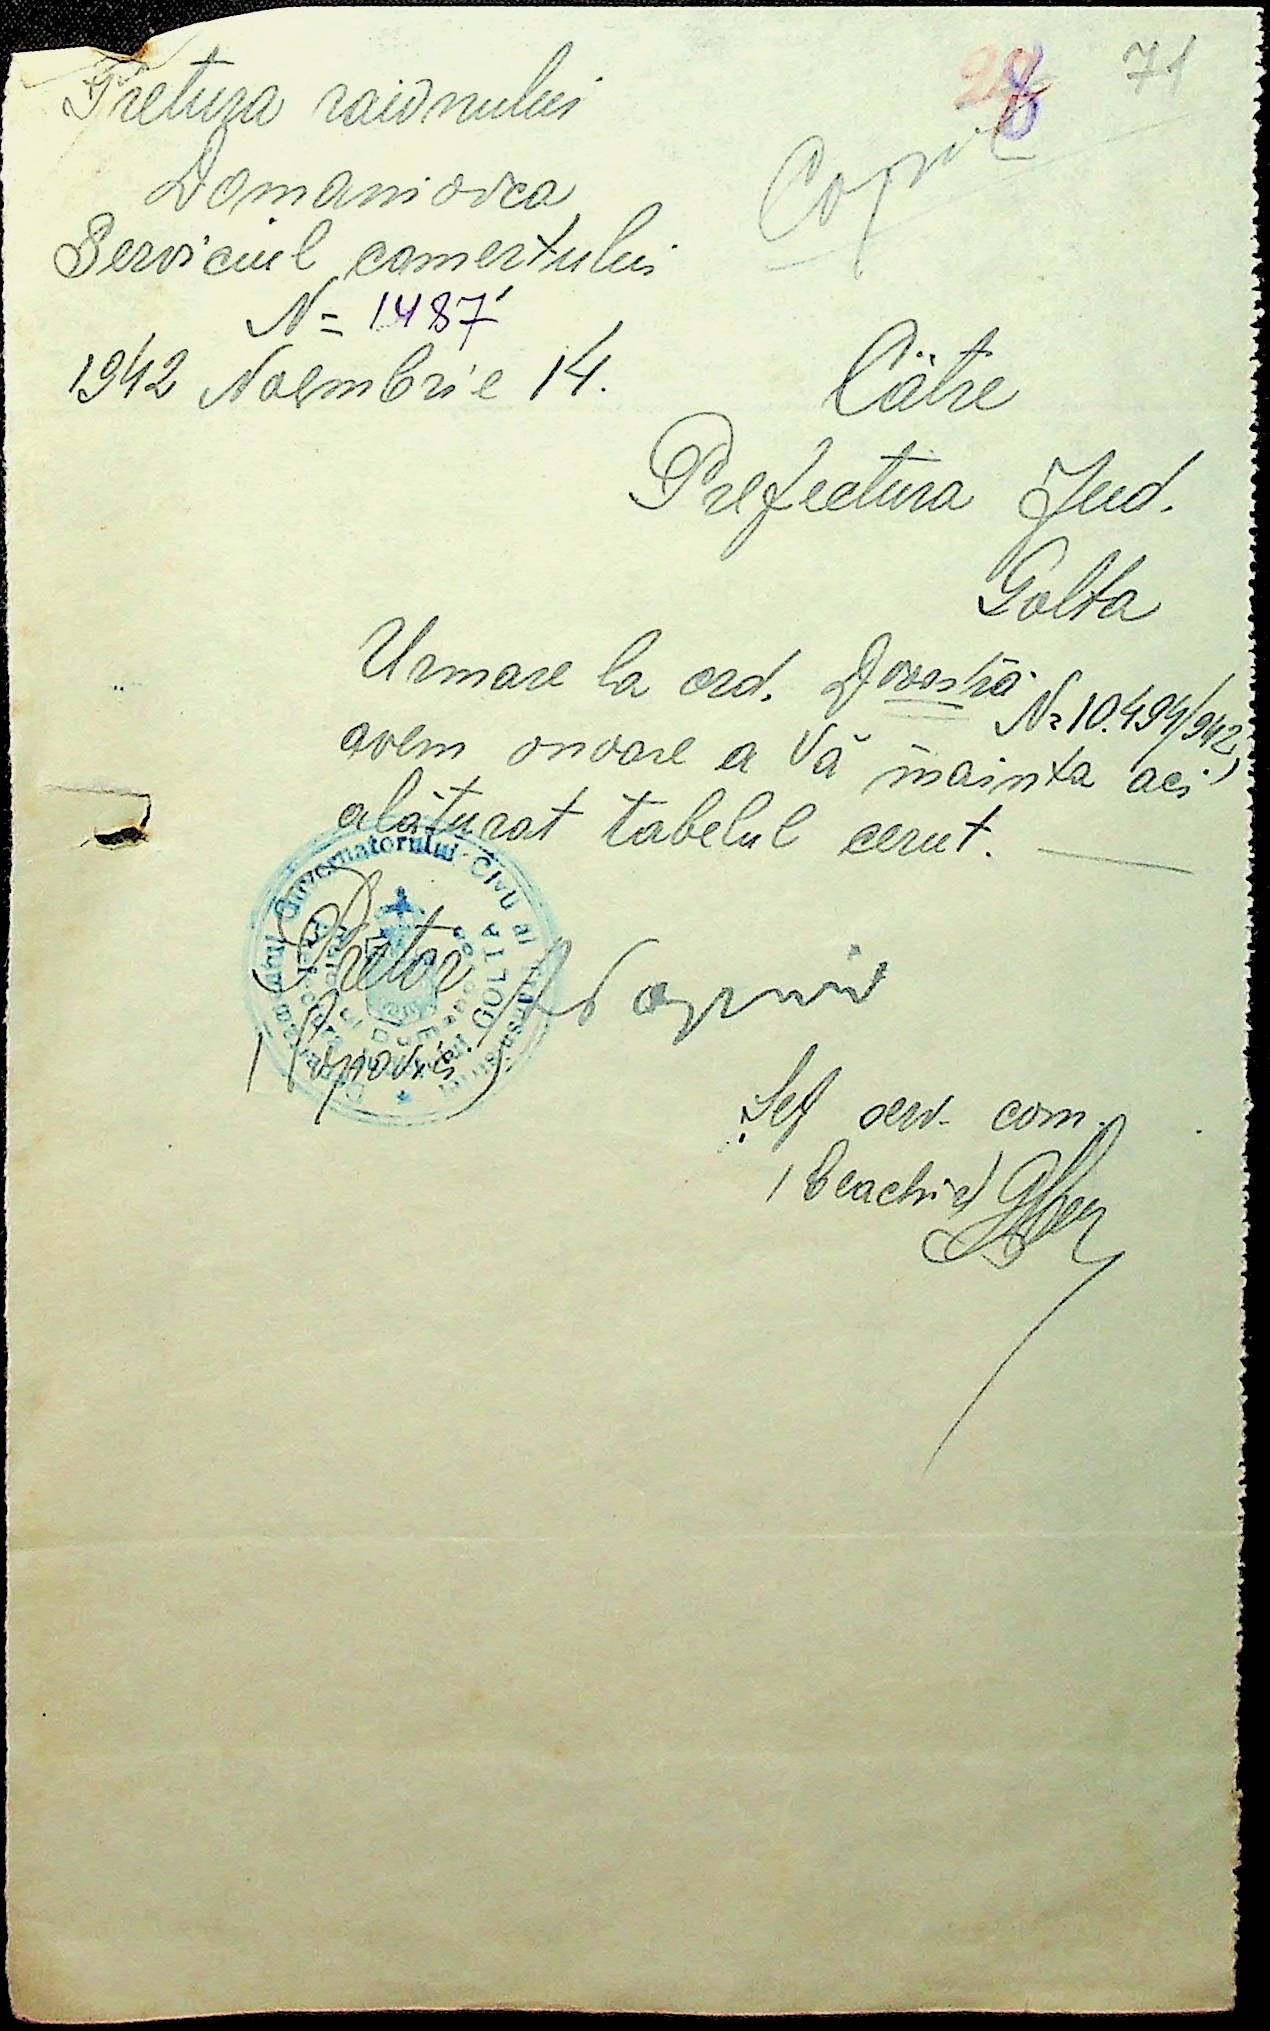 71
8
Pretura raionului
Domaniovca
Serviciul comertului
N= 1487
1942 Noembrie 14.
Către
Prefectura Jud.
Golta
Urmare la ord. Dvoastră N= 10.494/942,
avem onoare a Vă înainta aci
alăturat tabelul cerut.
Guvernatorului Civil al
GOLTA
Pretor
/ Popovici /
Șef serv. com.